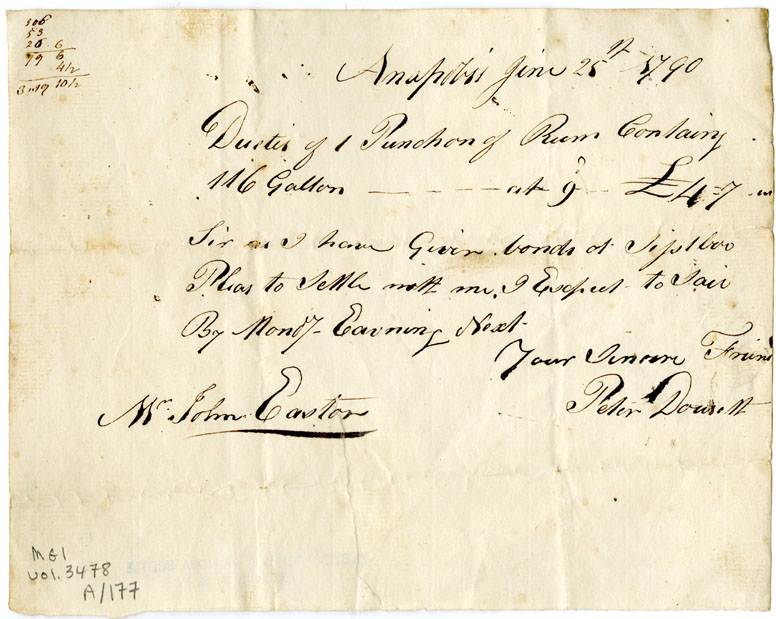 106
53
26. 6
79 6
4½
3"19 10½
Anapolis Jine 25th 1790
Dueties of 1 Punchon of Rum Containg
116 Gallon — — — at 9d — £4"7
Sir as I have Givin bonds at Sissiboo
Pleas to Settle with me, I Expect to Sail
By Mondy Eavning Next
Your Sincere Friend
Peter Dousett
Mr John Easton
MG1
vol. 3478
A/177